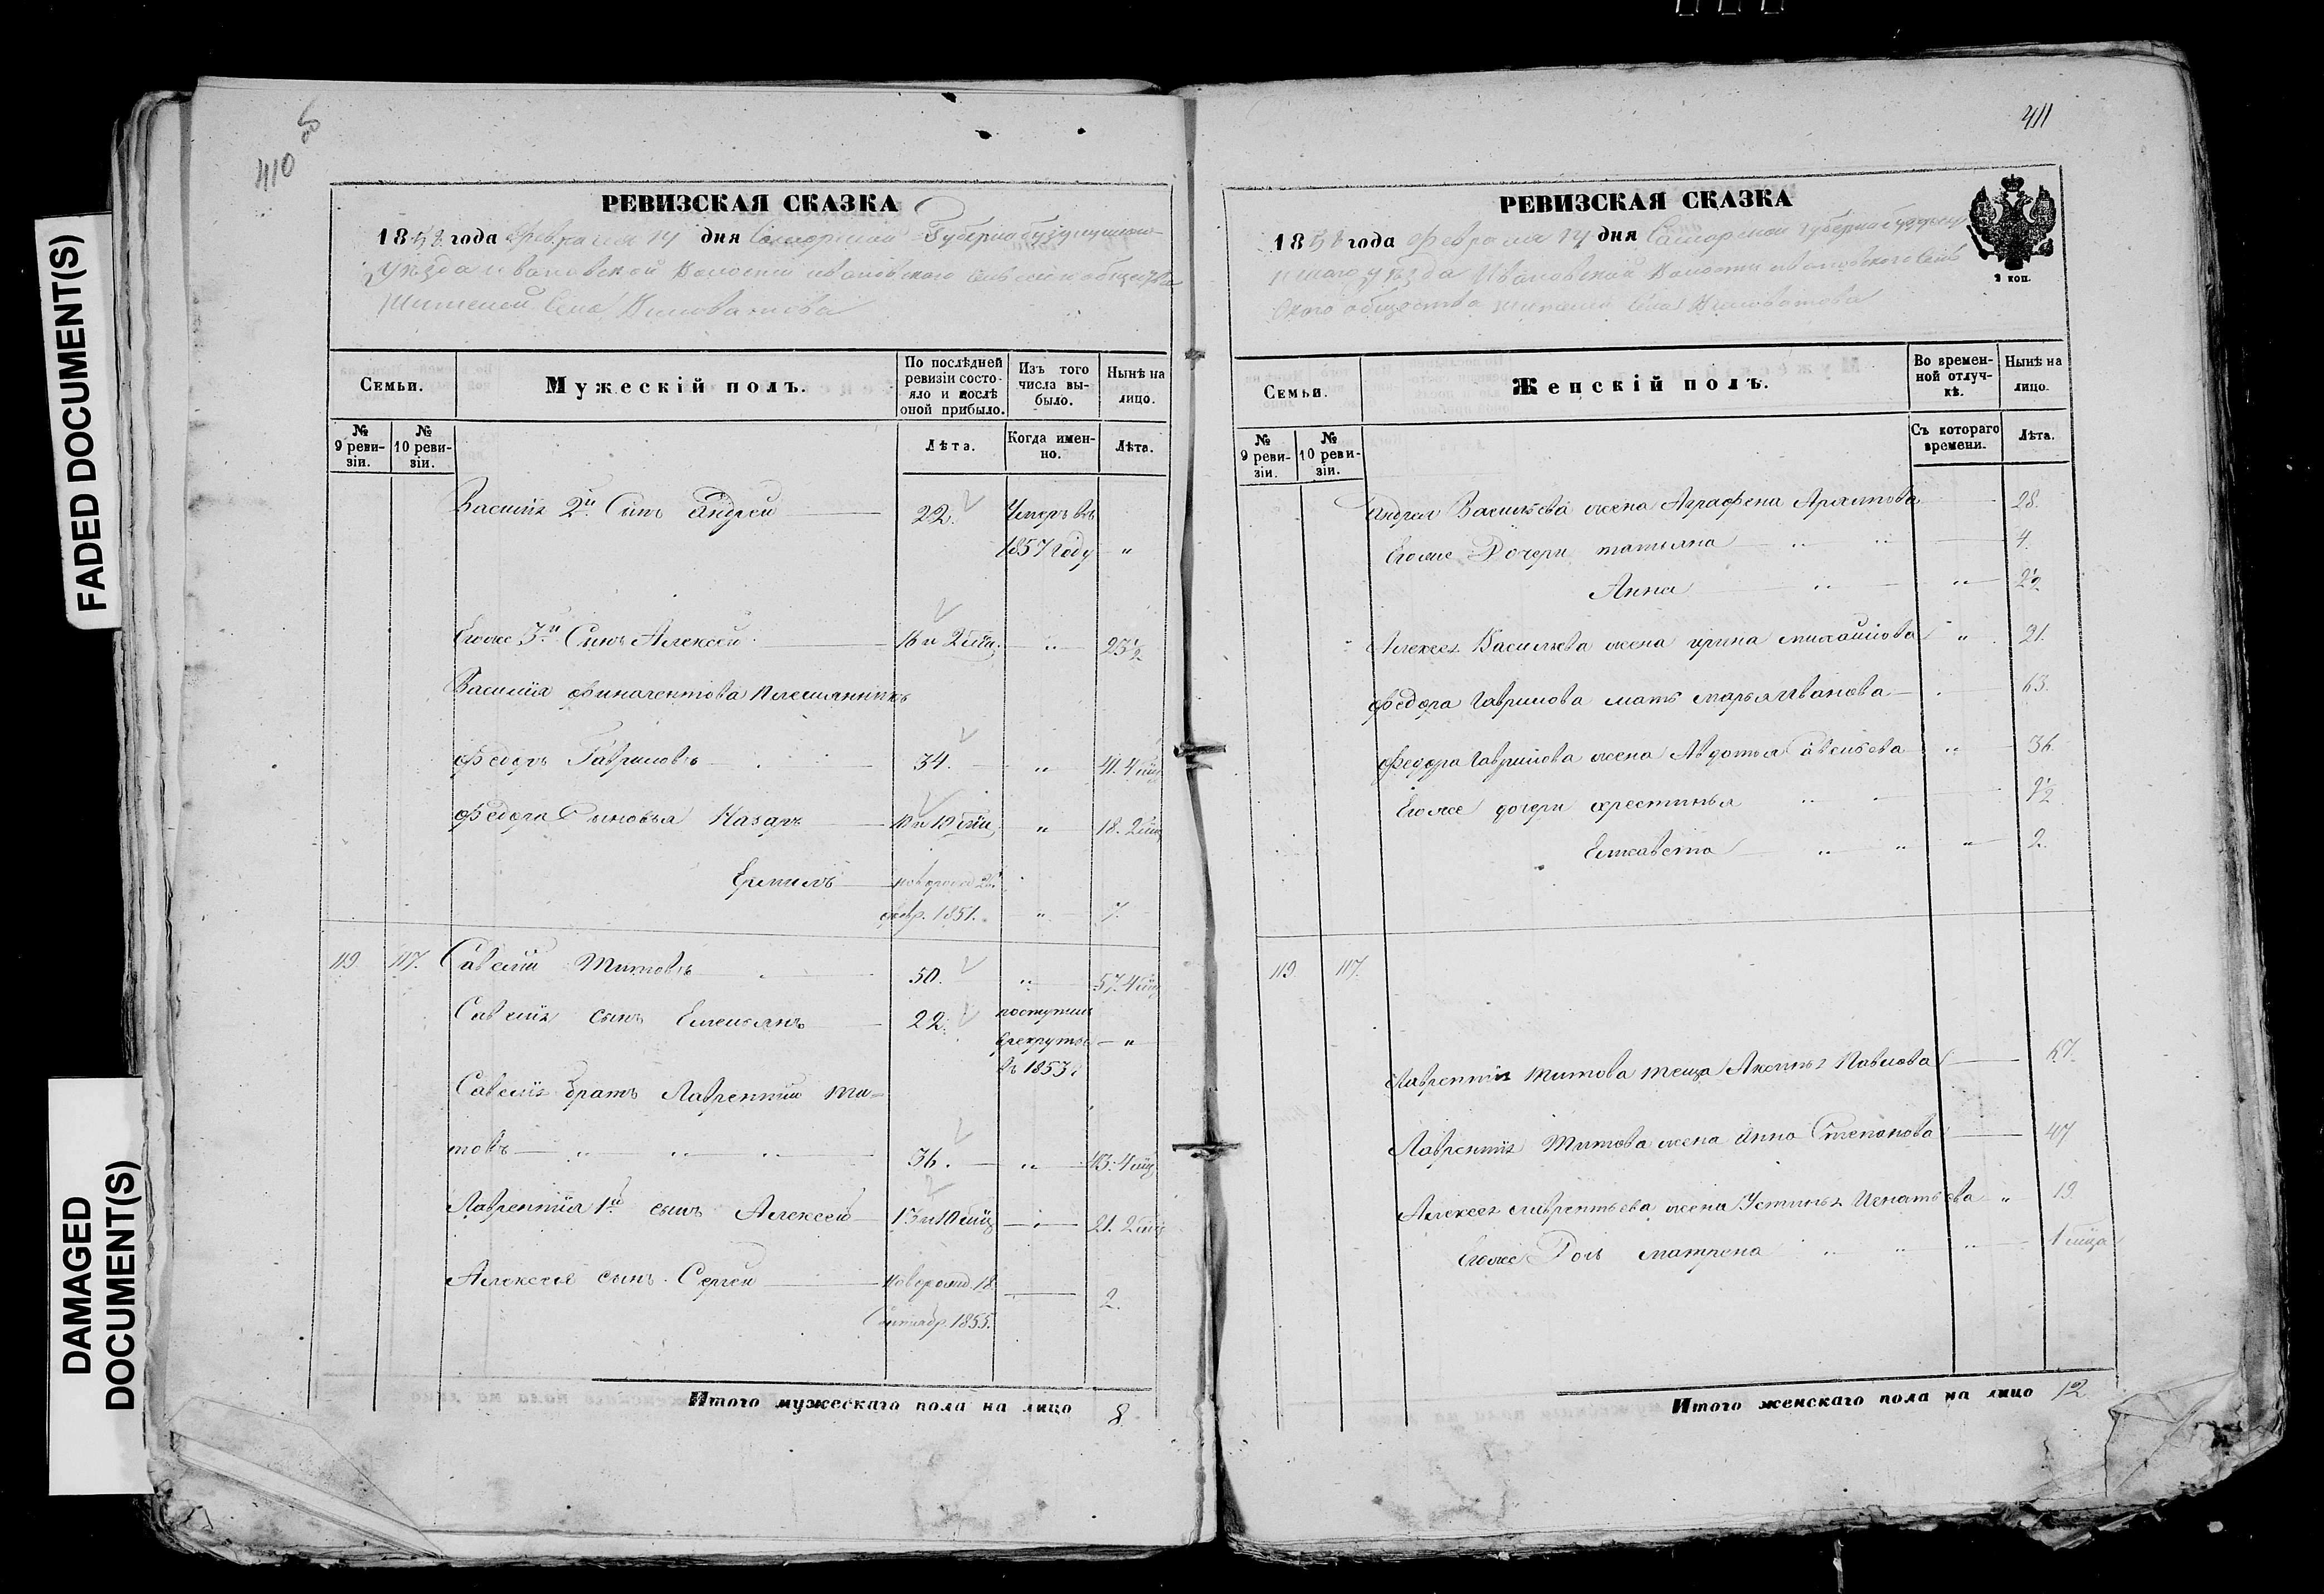 FADED DOCUMENT(S)
DAMAGED
DOCUMENT(S)
410
РЕВИЗСКАЯ СКАЗКА
1858 года Февраля 14 дня Самарской Губернии Бузулукскаго
уѣзда Ивановской Волости Ивановского сельскаго общества
жителей села Виловатова
Семьи.
Мужескій полъ.
По послѣдней
ревизіи состо-
яло и послѣ
оной прибыло.
Изъ того
числа вы-
было.
Нынѣ на
лицо.
№
9 реви-
зіи.
№
10 реви-
зіи.
Лѣта.
Когда имен-
но.
Лѣта.
Василія 2й Сынъ Андрей 22. Умеръ въ
1857 году "
Егоже 3й Сынъ Алексей 16 и 2 мѣ. " 23½
Василія Финагентова племянникъ
Федоръ Гавриловъ 34. " 41. 4 мѣц
Федора Сыновья Назаръ 10 и 10 мѣц. " 18. 2 мѣц
Ермилъ новорожд 26.
февр. 1851. " 7.
119 117. Савелій Титовъ 50. " 57. 4 мѣц
Савелія сынъ Емельянъ 22. поступил
врекруты "
въ 1853 г
Савелія братъ Лаврентий Ти=
товъ " " " 36. " 43. 4 мѣц.
Лаврентія 1й сынъ Алексей 13 и 10 мѣц " 21. 2 мѣц
Алексея сынъ Сергей новорожд. 18
Сентябр. 1855. 2.
Итого мужескаго пола на лицо 8
411
РЕВИЗСКАЯ СКАЗКА
1858 года Февраля 14 дня Самарской Губернии Бузулук
скаго уѣзда Ивановской Волости Ивановского Сель
скаго общества жителей села Виловатова
2 коп.
Семьи.
Женскій полъ.
Во времен-
ной отлуч-
кѣ.
Нынѣ на
лицо.
№
9 реви-
зіи.
№
10 реви-
зіи.
Съ котораго
времени.
Лѣта.
Андрея Васильева жена Аграфена Архипова 28.
Егоже Дочери татьяна " " 4.
Анна " " 2½
Алексея Васильева жена ирина михайлова " 21.
Федора Гаврилова мать марья Иванова 63.
Федора Гаврилова жена Авдотья Савельева " 36.
Егоже дочери хрестинья " "
Елисавета " " " 2.
119 117.
Лаврентія Титова теща Аксинья Павлова 67.
Лаврентія Титова жена Анна Степанова 47
Алексея лаврентьева жена Устинья Игнатьева " 19
Егоже Дочь матрена " " " 1 мѣца
Итого женскаго пола на лицо 12